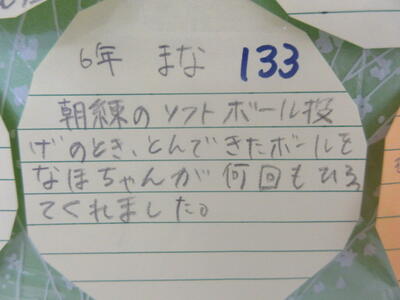 6年 まな 133
朝練のソフトボール投
げのとき、とんできたボールを
なほちゃんが何回もひろっ
てくれました。